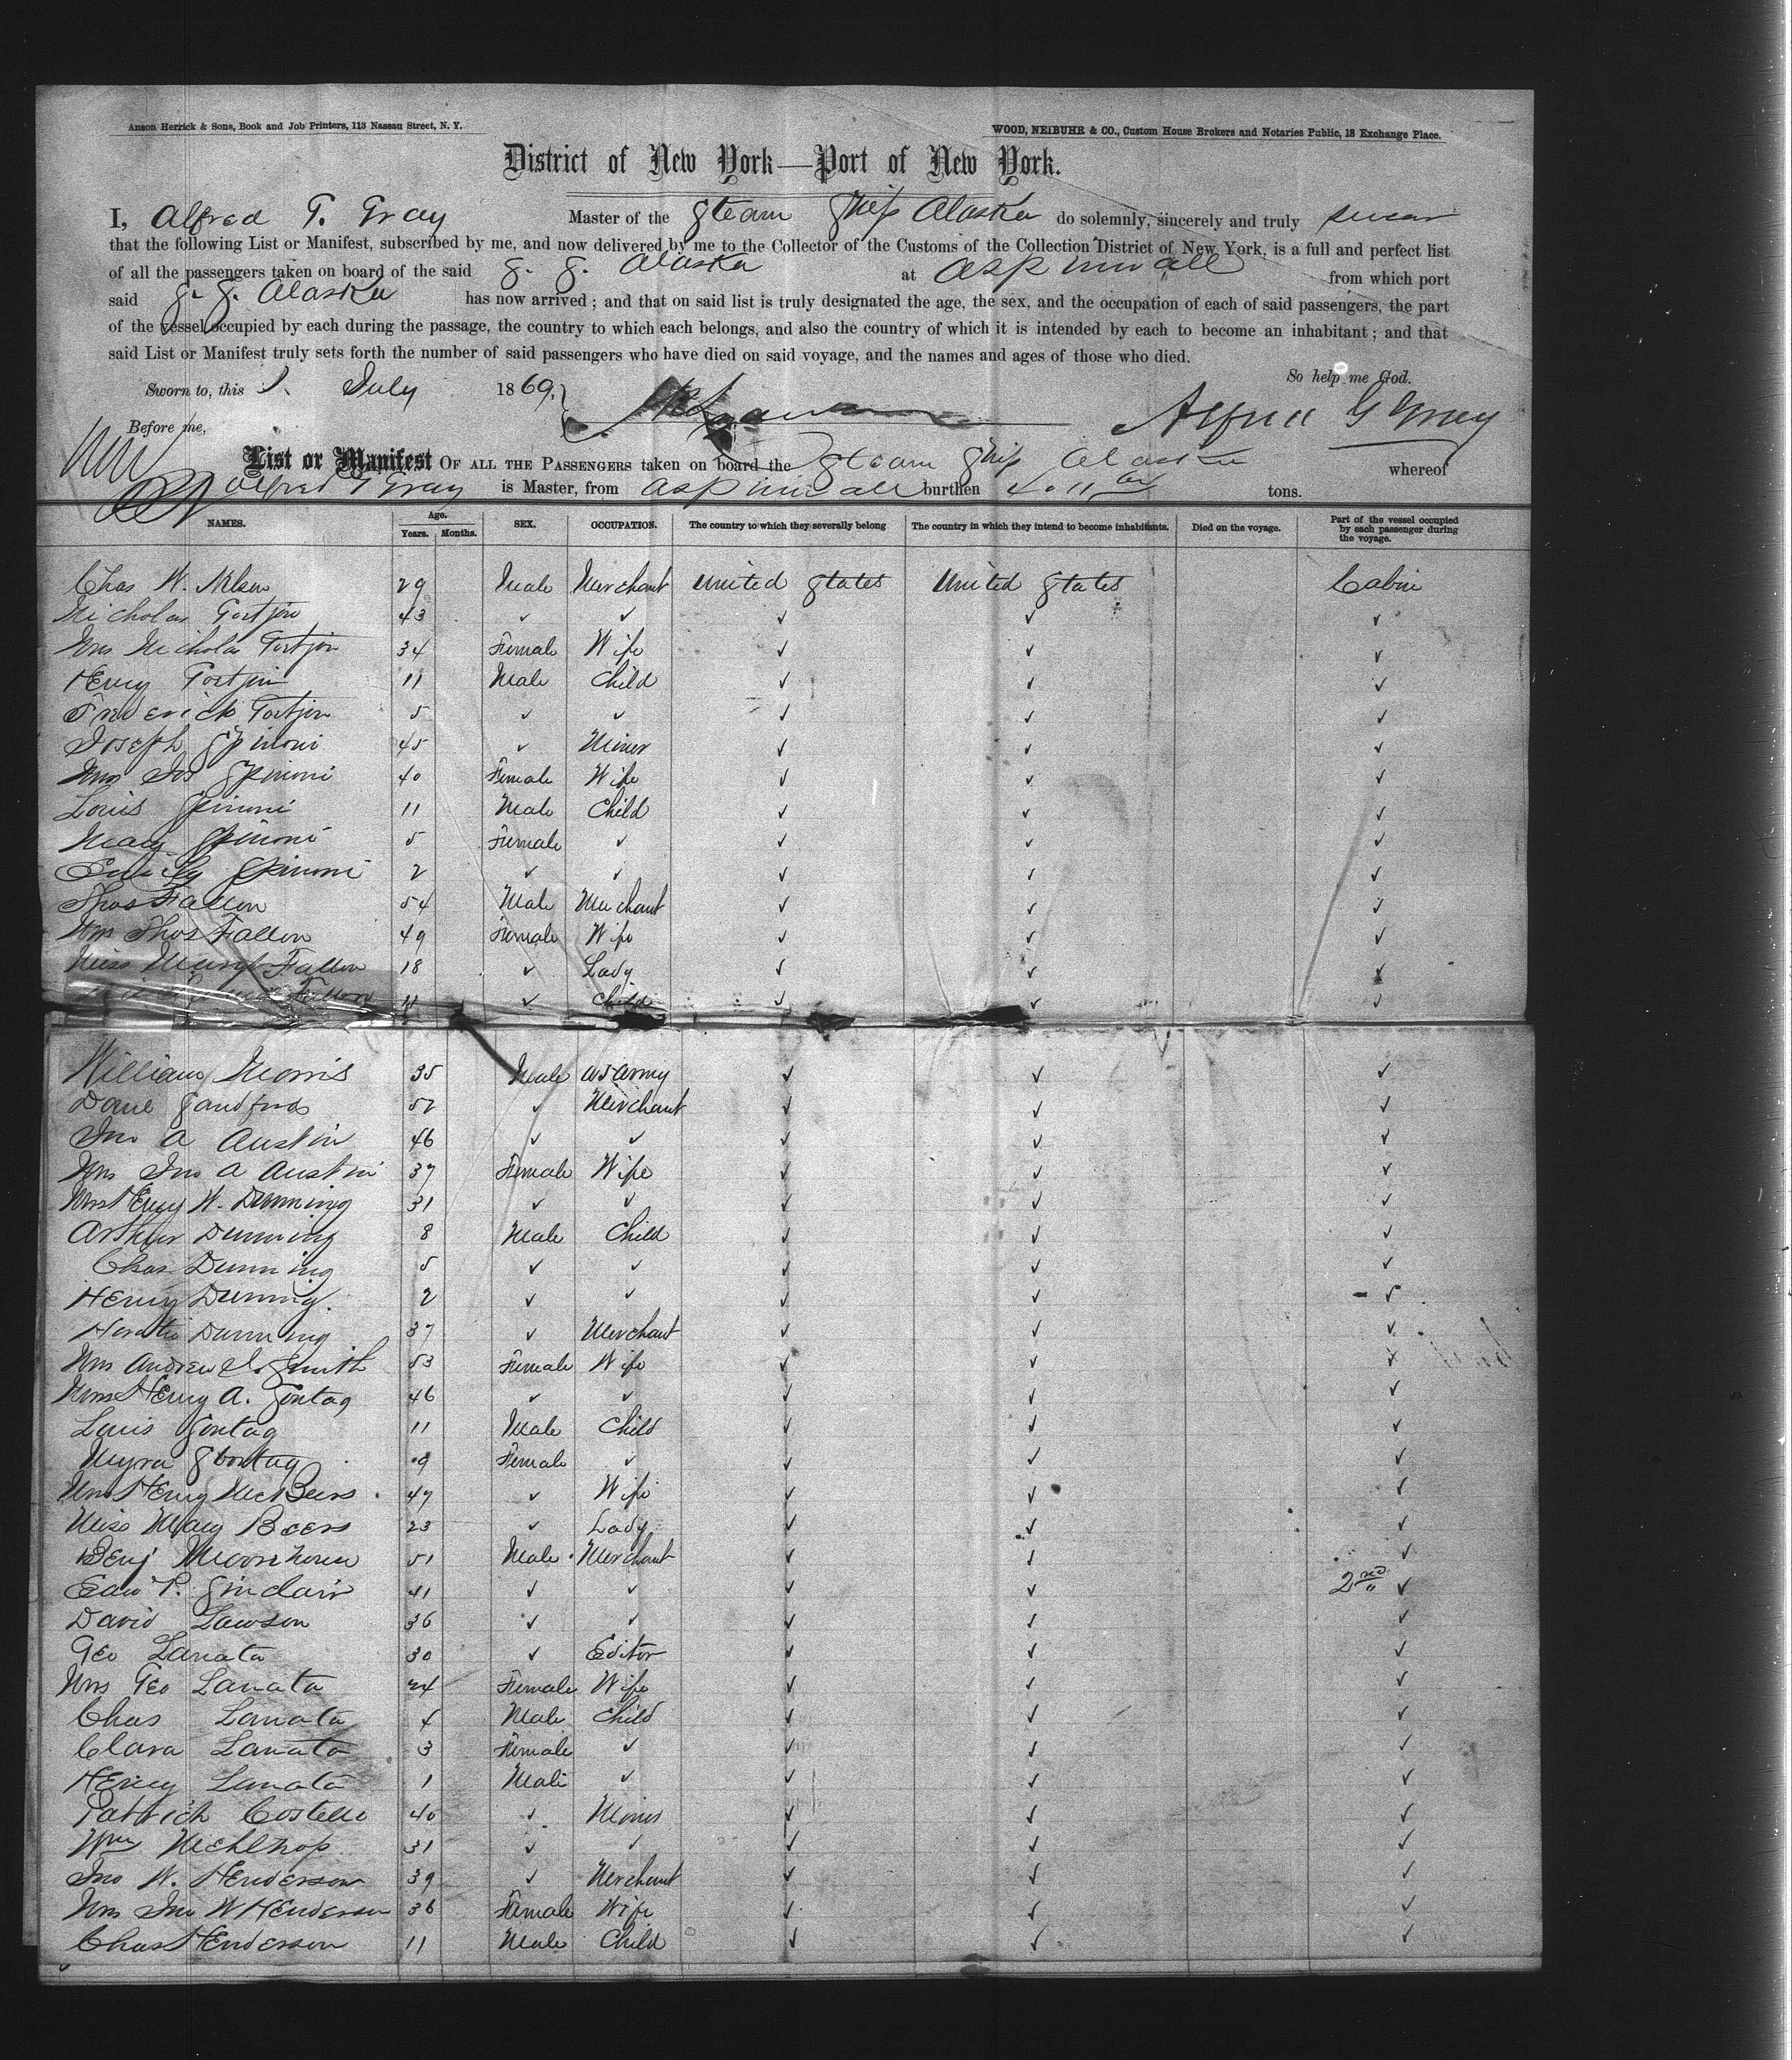 Anson Herrick & Sons, Book and Job Printers, 113 Nassau Street, N. Y.
WOOD, NEIBUHR & CO., Custom House Brokers and Notaries Public, 18 Exchange Place.
District of New York—Port of New York.
I, Alfred T. Gray Master of the Steam Ship Alaska do solemnly, sincerely and truly swear
that the following List or Manifest, subscribed by me, and now delivered by me to the Collector of the Customs of the Collection District of New York, is a full and perfect list
of all the passengers taken on board of the said S. S. Alaska at Aspinwall from which port
said S. S. Alaska has now arrived; and that on said list is truly designated the age, the sex, and the occupation of each of said passengers, the part
of the vessel occupied by each during the passage, the country to which each belongs, and also the country of which it is intended by each to become an inhabitant; and that
said List or Manifest truly sets forth the number of said passengers who have died on said voyage, and the names and ages of those who died.
So help me God.
Sworn to, this 1. July 1869,
Before me,
Alfred G Gray
List or Manifest OF ALL THE PASSENGERS taken on board the Steam Ship Alaska whereof
Alfred T Gray is Master, from Aspinwall burthen 4011 tons.
NAMES. Age. Years. Months. SEX. OCCUPATION. The country to which they severally belong The country in which they intend to become inhabitants. Died on the voyage. Part of the vessel occupied by each passenger during the voyage.
Chas W. Nelson 29 Male Merchant United States United States Cabin
Nicholas Tortjon 43 ✓ ✓ ✓ ✓ ✓
Mrs Nicholas Tortjon 34 Female Wife ✓ ✓ ✓
Henry Tortjon 11 Male Child ✓ ✓ ✓
Frederick Tortjon 5 ✓ ✓ ✓ ✓ ✓
Joseph Spinoni 45 ✓ Miner ✓ ✓ ✓
Mrs Jos Spinoni 40 Female Wife ✓ ✓ ✓
Louis Spinoni 11 Male Child ✓ ✓ ✓
Mary Spinoni 5 Female ✓ ✓ ✓ ✓
Emily Spinoni 2 ✓ ✓ ✓ ✓ ✓
Thos Fallon 54 Male Merchant ✓ ✓ ✓
Mrs Thos Fallon 49 Female Wife ✓ ✓ ✓
Miss Mary Fallon 18 ✓ Lady ✓ ✓ ✓
Fallon 11 ✓ Child ✓ ✓ ✓
William Morris 35 Male US Army ✓ ✓ ✓
Dane Sandfords 52 ✓ Merchant ✓ ✓ ✓
Jno A Austin 46 ✓ ✓ ✓ ✓ ✓
Mrs Jno A Austin 37 Female Wife ✓ ✓ ✓
Mrs Henry W. Dunning 31 ✓ ✓ ✓ ✓ ✓
Arthur Dunning 8 Male Child ✓ ✓ ✓
Chas Dunning 5 ✓ ✓ ✓ ✓ ✓
Henry Dunning. 2 ✓ ✓ ✓ ✓ ✓
Horatio Dunning 37 ✓ Merchant ✓ ✓ ✓
Mrs Andrew J. Smith 53 Female Wife ✓ ✓ ✓
Mrs Henry A. Sontag 46 ✓ ✓ ✓ ✓ ✓
Louis Sontag 11 Male Child ✓ ✓ ✓
Myra Sontag 9 Female ✓ ✓ ✓ ✓
Mrs Henry McBeers 47 ✓ Wife ✓ ✓ ✓
Miss Mary Beers 23 ✓ Lady ✓ ✓ ✓
Benj Moorehouse 51 Male Merchant ✓ ✓ ✓
Edw P. Sinclair 41 ✓ ✓ ✓ ✓ 2nd " ✓
David Lawson 36 ✓ ✓ ✓ ✓ ✓
Geo Lanata 30 ✓ Editor ✓ ✓ ✓
Mrs Geo Lanata 24 Female Wife ✓ ✓ ✓
Chas Lanata 4 Male Child ✓ ✓ ✓
Clara Lanata 3 Female ✓ ✓ ✓ ✓
Henry Lanata 1 Male ✓ ✓ ✓ ✓
Patrick Costello 40 ✓ Miner ✓ ✓ ✓
Wm Mehltrop 31 ✓ ✓ ✓ ✓ ✓
Jno W. Henderson 39 ✓ Merchant ✓ ✓ ✓
Mrs Jno W Henderson 36 Female Wife ✓ ✓ ✓
Chas Henderson 11 Male Child ✓ ✓ ✓